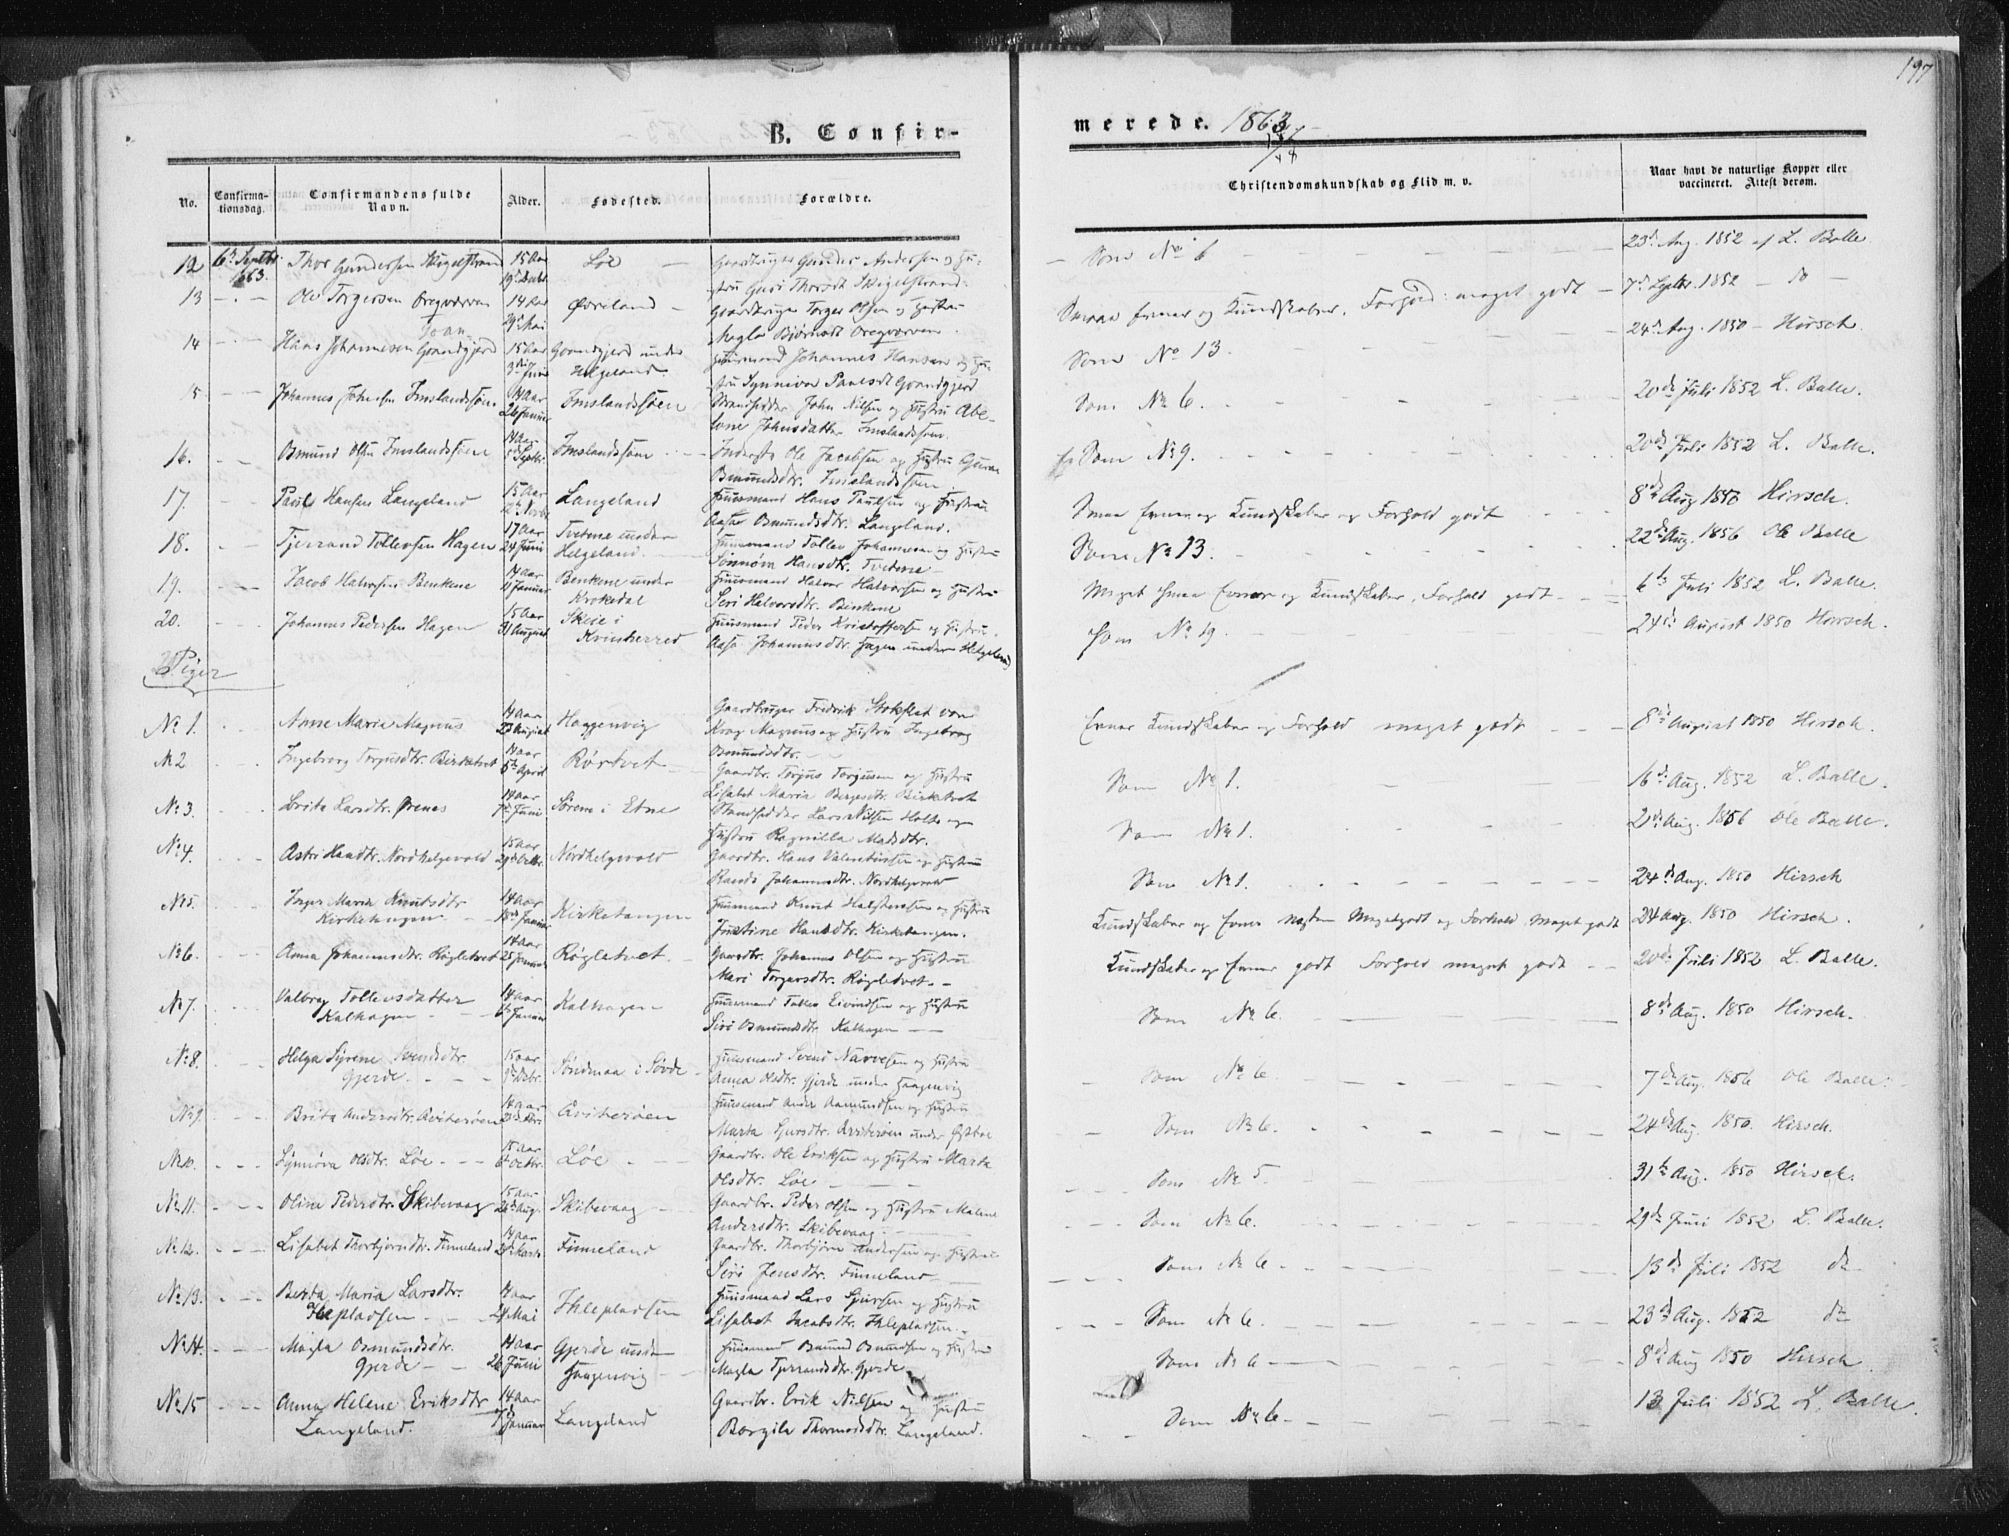 197
B. Confir-
merede. 1863
No.
Confirma-
tionsdag.
Confirmandens fulde
Navn.
Alder.
Fødested.
Forældre.
Christendomskundskab og Flid m. v.
Naar havt de naturlige Kopper eller
vaccineret. Attest derom.
12 6te Septbr. 1863. Thor Gundersen 15 Aar Løe Gaardbruger Gunder Andersen og Hu-
stru Guri Thorsdt.
Som No 6 23de Aug. 1852 af L. Balle
13 Ole Torgersen 14 Aar 29 Mai Øvreland Gaardbruger Torger Olsen og Hustru
Magla Bjørnsdt.
Smaa Evner og Kundskaber. Forhold: meget godt 7de Septbr. 1852 do
14 Hans Johannesen Grandgjerd 15 Aar 3die Juni Grandgjerd under
Helgeland. Huusmand Johannes Hansen og Hu-
stru Synneva Paulsdt Grandgjerd
Som No 13. 24de Aug. 1850 Hirsch.
15 Johannes Johnsen Imslandssøen 14 Aar 26 Januar Imslandssøen Strandsidder John Nilsen og Hustru Abe-
lone Johnsdatter Imslandssøen.
Som No 6. 20de Juli 1852 L. Balle.
16. Osmund Olsen Imslandssøen 14 Aar Septbr. Imslandssøen Inderst Ole Jacobsen og Hustru
Osmundsdtr. Imslandssøen
Som No 9. 20de Juli 1852 L. Balle.
17. Paul Hansen Langeland 15 Aar Langeland Huusmand Hans Paulsen og Hustru
Aasa Osmundsdtr. Langeland.
Smaa Evner og Kundskaber og Forhold godt 8de Aug 1850 Hirsch.
18. Tjerrand Tollevsen Hagen 17 Aar 24 Juni Tvetene under
Helgeland. Huusmand Tollev Johannesen og Hustru
Sønnøva Hansdtr. Tvetene
Som No 13. 22de Aug. 1856 Ole Balle
19. Jacob Halvorsen Benkene 14 Aar Januar Benkene under
Krokedal Huusmand Halvor Halvorsen og Hustru
Siri Halvorsdtr. Benkene
Meget smaa Evner og Kundskaber, Forhold godt 6te Juli 1852 L. Balle.
20. Johannes Pedersen Hagen 15 Aar 31 August Skeie i
Kvinherred Huusmand Peder Kristoffersen og Hustru
Aasa Johannesdtr. Hagen under Helgeland
Som No 19. 24de August 1850 Hirsch.
Piger
No 1. Anne Maria Magnus 14 Aar 23 August Haggenvig Gaardbruger Fredrik Stokflet von
Krog Magnus og Hustru Ingebrog
Osmundsdtr.
Evner Kundskaber og Forhold meget godt 8de August 1850 Hirsch.
No 2 Ingeborg Torgusdtr. Birketvet 14 aar 6te April Rørtvet Gaardbr. Torjus Torgusen og Hustru
Lisabet Maria Birketvet
Som No 1. 16de Aug. 1852 L. Balle.
No 3. Brita Larsdtr. Ørenes 14 aar 7de Juni Sørem i Etne Strandsidder Lars Nilsen Holte og
Hustru Ragnilla Madsdtr.
Som No 1. 21de Aug. 1856 Ole Balle.
No 4. Astri Hansdtr. Nordhelgevold 15 aar 29de Octbr. Nordhelgevold Gaardbr. Hans Valentinsen og Hustru
Randi Johannesdtr. Nordhelgevold
Som No 1. 24de Aug. 1850 Hirsch
No 5. Inger Maria Knutsdtr
Kirketangen 14 aar 18de Januar Kirketangen Huusmand Knut Halstensen og Hustru
Justine Hansdtr. Kirketangen.
Kundskaber og Evner næsten Megetgodt og Forhold Meget godt 24 Aug. 1850 Hirsch.
No 6. Anna Johannesdtr. Røgletvet 14 aar 25 Januar Røgletvet. Gaardbr. Johannes Olsen og Hustru
Mari Torgersdtr. Røgletvet.
Kundskaber og Evner godt Forhold meget godt 20de Juli 1852 L. Balle.
No 7. Valbrog Tollevsdatter
Kalhagen 14 aar 6te Januar Kalhagen Huusmand Tollev Eivindsen og Hustru
Siri Osmundsdtr. Kalhagen
Som No 6. 8de Aug. 1850 Hirsch.
No 8. Helga Syrene Svendsdtr.
Gjerde 15 aar Decbr. Søndenaa i Søvde Huusmand Svend Narvesen og Hustru
Anna Olsdtr. Gjerde under Haagenvig
Som No 6. 7de Aug. 1856 Ole Balle.
No 9. Brita Andersdtr. Qviterøen 14 aar Qviterøen Huusmand Ander Aamundsen og Hustru
Marta Qviterøen under Østbø
Som No 6. 24de Aug. 1850. Hirsch.
No 10. Synnøva Olsdtr. Løe 15 aar 6te Octbr. Løe Gaardbr. Ole Eriksen og Hustru Marta
Olsdtr. Løe
Som No 5. 31te Aug. 1850 Hirsch.
No 11. Oline Pedersdtr. Skibevaag 15 aar 26de Aug. Skibevaag Gaardbr. Peder Olsen og Hustru Malene
Andersdtr. Skibevaag
Som No 6. 29de Juni 1852 L. Balle.
No 12. Lisabet Thorbjørnsdtr. Finneland 14 aar Marts Finneland Gaardbr. Thorbjørn Andersen og Hustru
Siri Jensdtr. Finneland
Som No 6. 13de Juli 1852 do
No 13. Berta Maria Larsdtr.
Ihlepladsen 14 aar 24 Mai Ihlepladsen Huusmand Lars Sjursen og Hustru
Lisabet Jacobsdtr. Ihlepladsen.
Som No 6. 23de Aug. 1852 do
No 14. Magla Osmundsdtr.
Gjerde 14 aar 26 Juni Gjerde under
Haagenvig Huusmand Osmund Osmundsen og Hustru
Magla Tjerrandsdtr. Gjerde
Som No 6 8de Aug 1850 Hirsch
No 15 Anna Helene Eriksdtr
Langeland. 14 aar 7de Januar Langeland Gaardbr. Erik Nilsen og Hustru
Borgila Thormodsdtr. Langeland.
Som No 6. 13 Juli 1852 L. Balle.